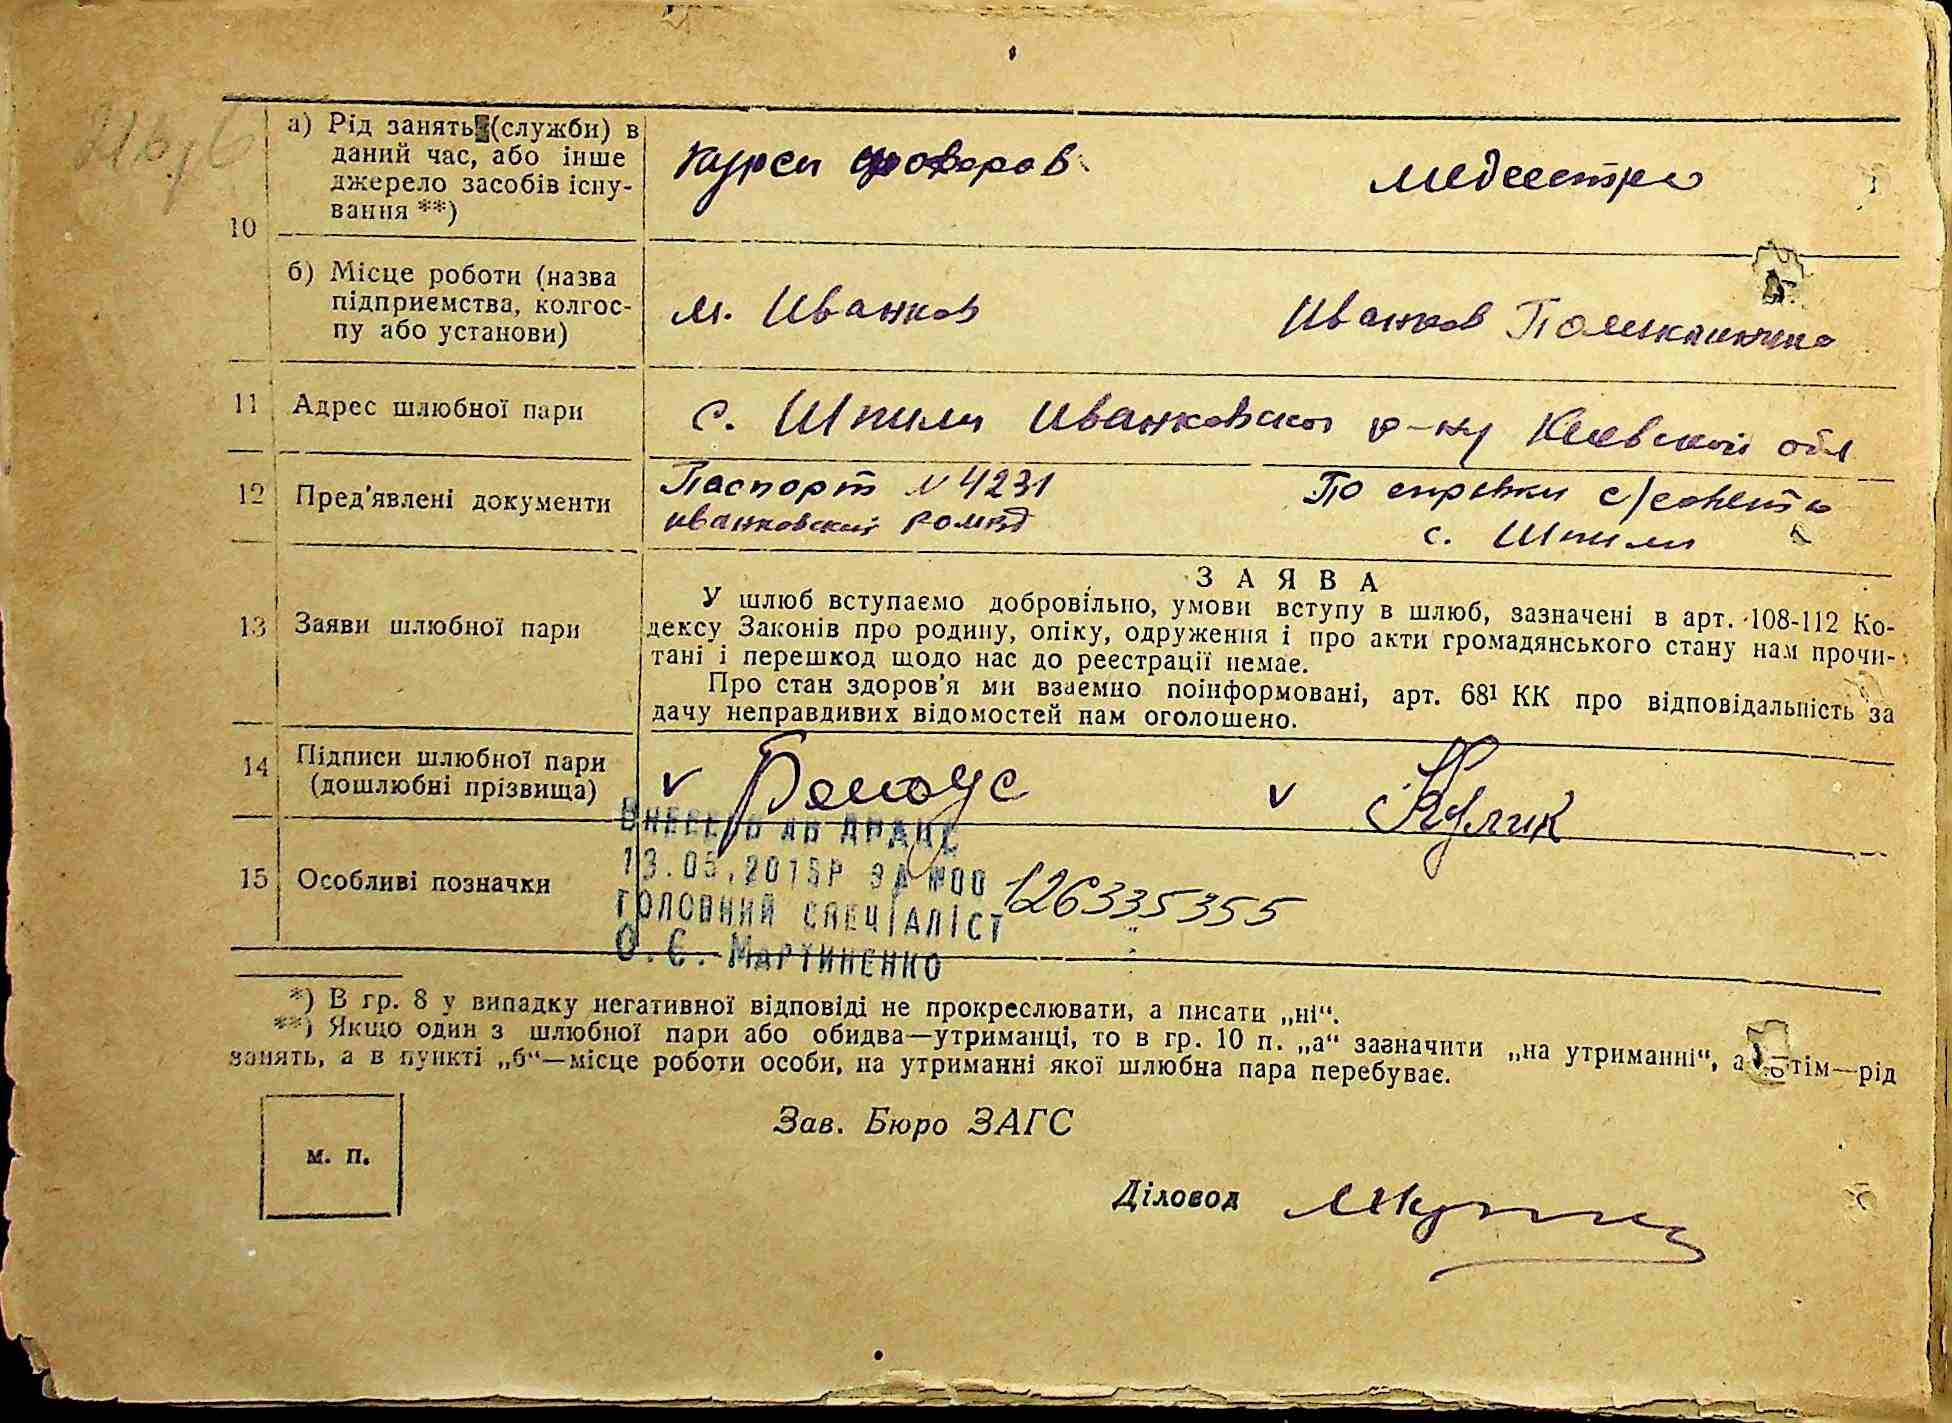 а) Рід занять (служби) в
даний час, або інше
джерело засобів існу-
вання **)
курси шоферов
медсестра
10
б) Місце роботи (назва
підприємства, колгос-
пу або установи)
м. Иванков
Иванков Поликлиника
11 Адрес шлюбної пари
с. Шпили Иванковского р-ну Киевской обл
12 Пред'явлені документи
Паспорт N 4231
Иванковский РОМВД
По справки с/совета
с. Шпили
ЗАЯВА
13 Заяви шлюбної пари
У шлюб вступаємо добровільно, умови вступу в шлюб, зазначені в арт. 108-112 Ко-
дексу Законів про родину, опіку, одруження і про акти громадянського стану нам прочи-
тані і перешкод щодо нас до реєстрації немає.
Про стан здоров'я ми взаємно поінформовані, арт. 68¹ КК про відповідальність за
дачу неправдивих відомостей нам оголошено.
14 Підписи шлюбної пари
(дошлюбні прізвища)
v Белоус
v Кулик
15 Особливі позначки
ВНЕСЕНО ДО ДРАЦС
13.05.2015Р ЗА №00 126335355
ГОЛОВНИЙ СПЕЦІАЛІСТ
О.Є. МАРТИНЕНКО
*) В гр. 8 у випадку негативної відповіді не прокреслювати, а писати „ні“.
**) Якщо один з шлюбної пари або обидва—утриманці, то в гр. 10 п. „а“ зазначити „на утриманні“, а потім—рід
занять, а в пункті „б“—місце роботи особи, на утриманні якої шлюбна пара перебуває.
м. п.
Зав. Бюро ЗАГС
Діловод